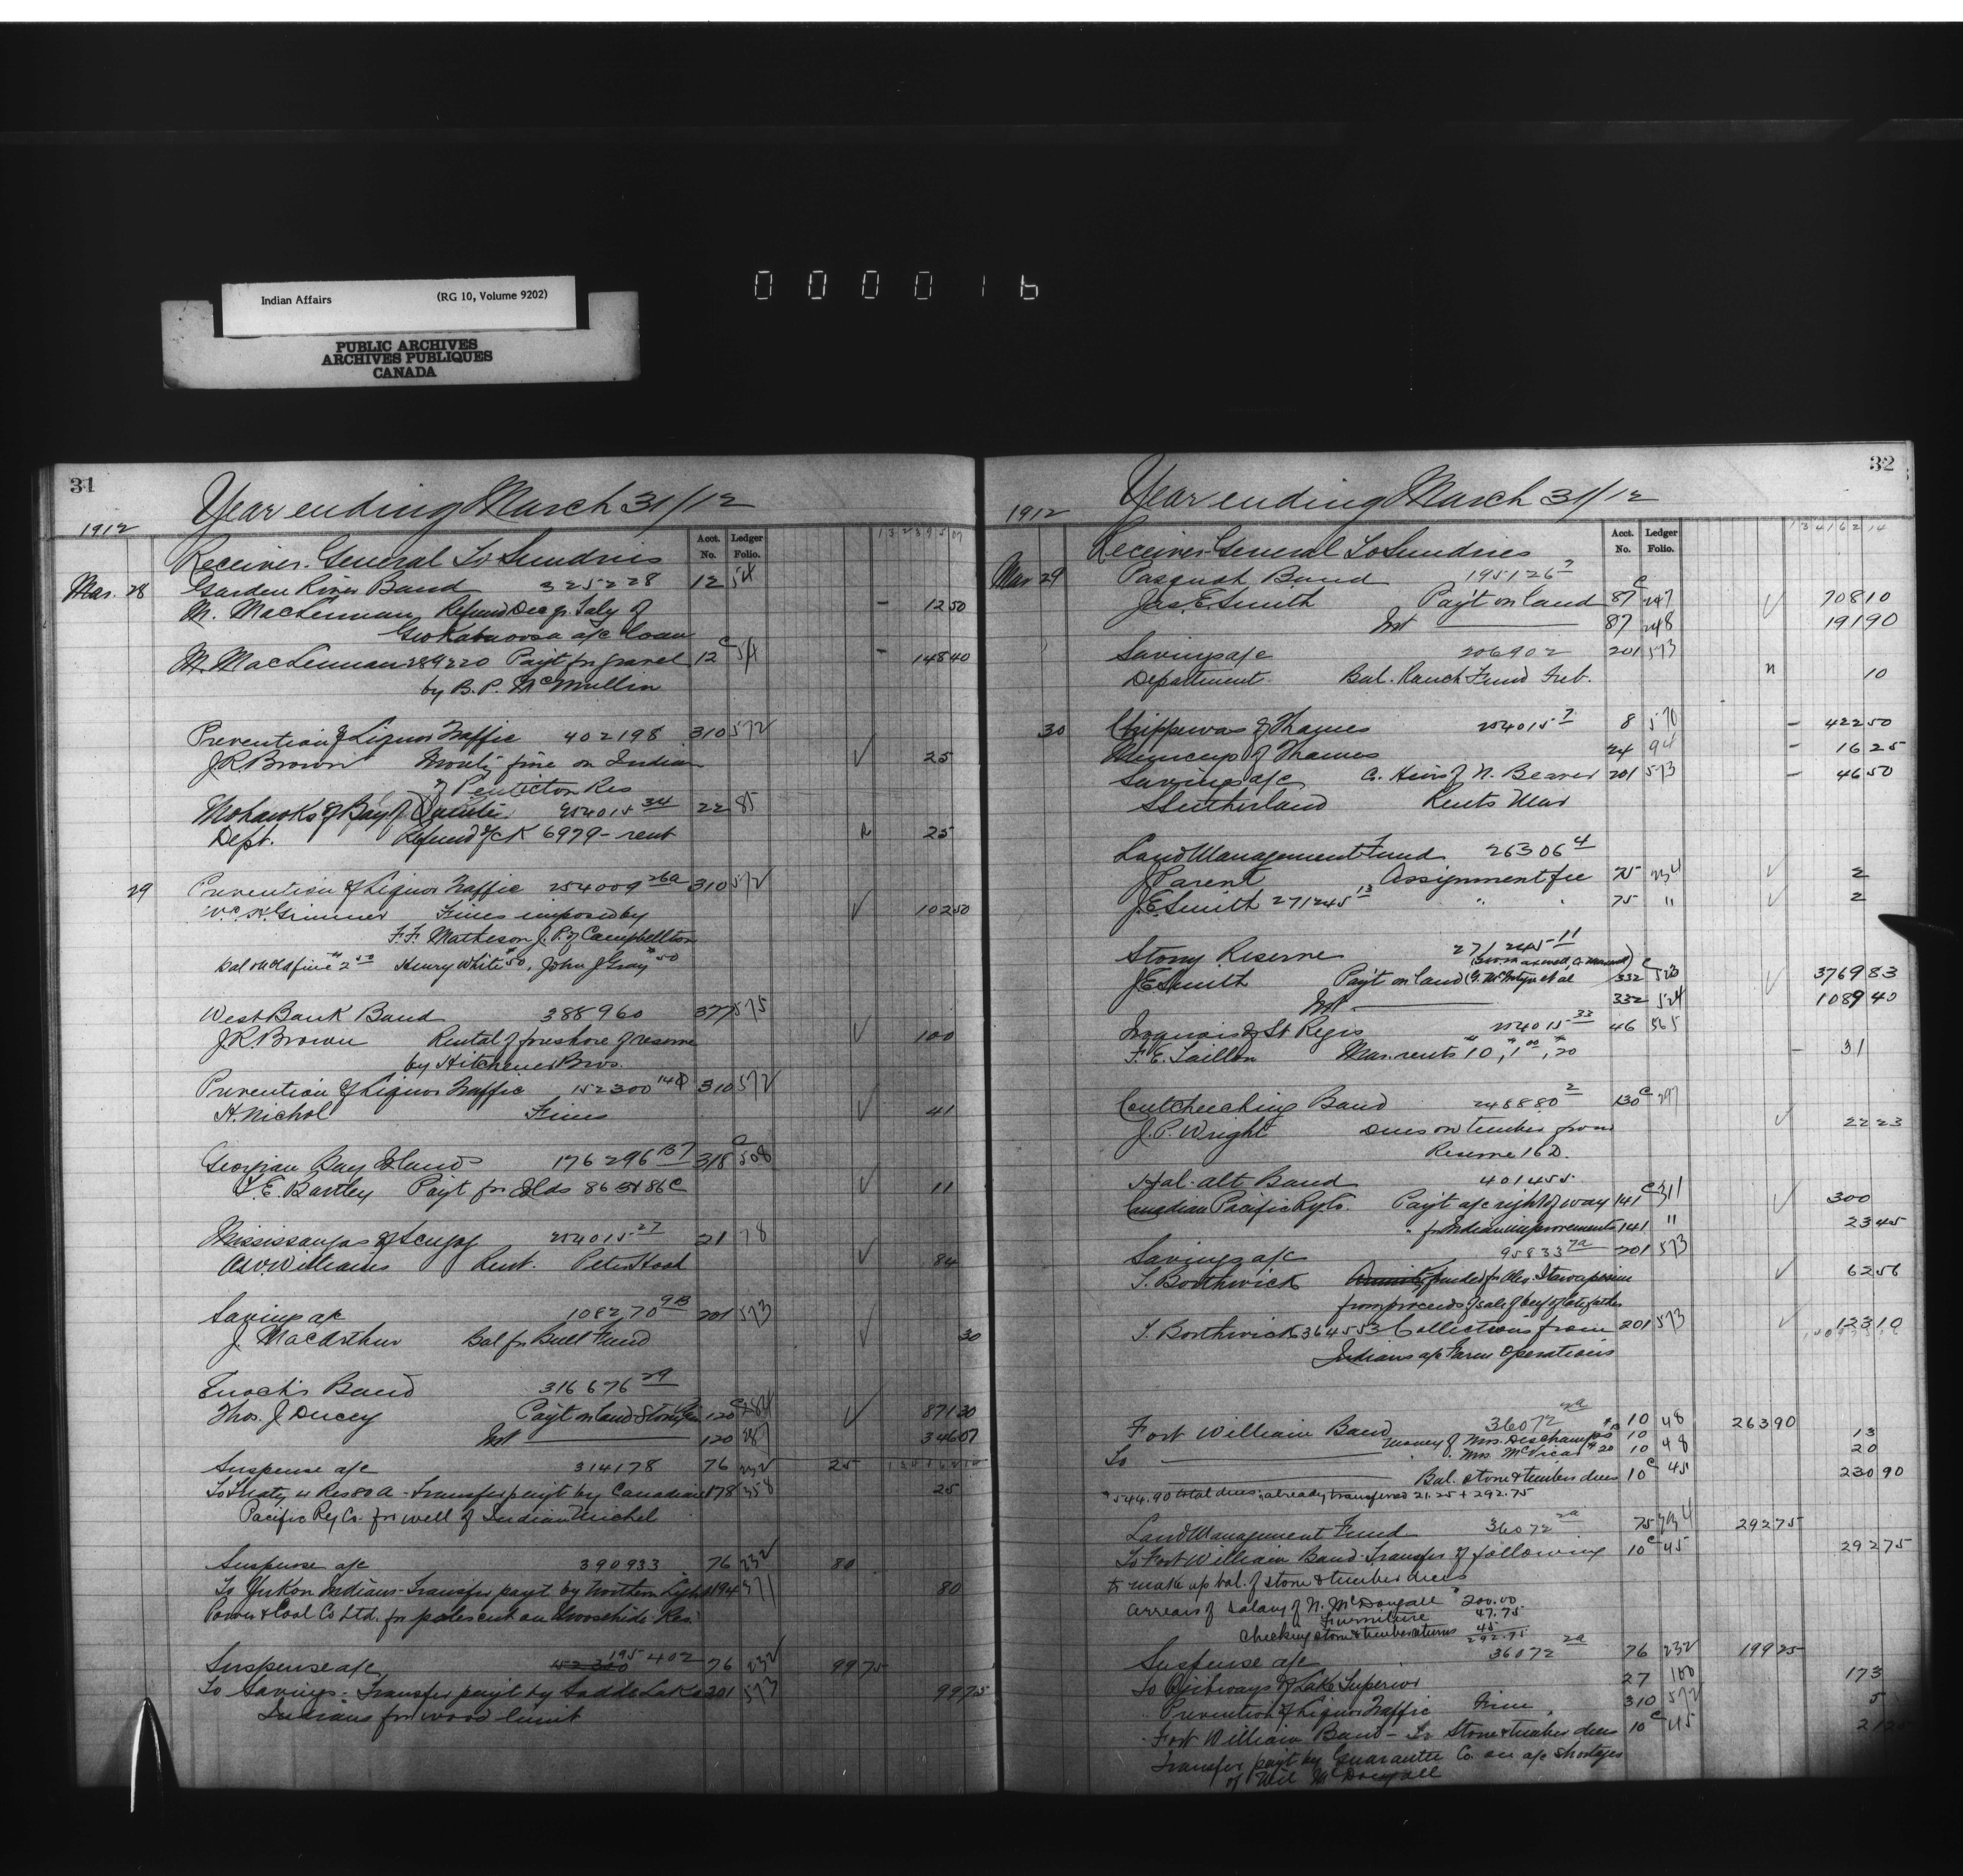 Indian Affairs (RG 10, Volume 9202)
PUBLIC ARCHIVES
ARCHIVES PUBLIQUES
CANADA
000016
31
Year ending March 31/12
1912
Acct. No. Ledger Folio.
Receiver General To Sundries
Mar. 28 Garden River Band 325228 12 54
M. MacLennan Refund Dec qr. Saly of - 12 50
Geo Kabaoosa a/c loan
M. MacLennan 289220 Payt for gravel 12c 54 - 148 40
by B. P. McMullin
Prevention of Liquor Traffic 402198 310 572
J. R. Brown Moiety fine on Indian 25
of Penticton Res
Mohawks of Bay of Quinte 254015 34 22 85
Dept. Refund of ck 6979 - rent n 25
29 Prevention of Liquor Traffic 254009 26a 310 572
Fines imposed by 102 50
F. F. Matheson J. P. of Campbellton
Bal on old fine $2 50 Henry White $50, John J Gray $50
West Bank Band 388960 377 575
J. R. Brown Rental of foreshore of reserve 100
by Hitchener Bros.
Prevention of Liquor Traffic 152300 310 572
H. Nichol Fines 41
Georgian Bay Islands 176296 318c 508
C. E. Bartley Payt for Islds 86 B & 86 C 11
Mississaugas of Scugog 254015 27 21 78
A. W. Williams Rent. 84
Savings a/c 108270 9B 201 573
J. MacArthur Bal for Bull Fund 30
Enoch's Band 316676 29
Thos. J Ducey Payt on land Stony Pln 120c 284 871 30
Int 120 346 07
Suspense a/c 314178 76 232 25
To Treaty 4 Res 80 A - Transfer payt by Canadian 178 358 25
Pacific Ry Co. for well of Indian Michel
Suspense a/c 390933 76 232 80
To Yukon Indians - Transfer payt by Northern Light 194 371 80
Power & Coal Co Ltd. for poles cut on Moosehide Res.
Suspense a/c 195402 76 232 99 75
To Savings - Transfer payt by Saddle Lake 201 573 99 75
Indians for wood limit
32
Year ending March 31/12
1912
Acct. No. Ledger Folio.
Receiver General To Sundries
Mar 29 Pasquah Band 195126 2
Jas. E. Smith Payt on land 87c 247 708 10
Int 87 248 191 90
Savings a/c 206902 201 573
Department Bal. Ranch Fund Feb. n 10
30 Chippewas of Thames 254015 7 8 570 - 422 50
Munceys of Thames 24 94 - 16 25
Savings a/c C. Heirs of N. Beaver 201 573 - 46 50
S Sutherland Rents Mar
Land Management Fund 26306 4
J Parent Assignment fee 75 234 2
J. E. Smith 271245 13 " " 75 " 2
Stony Reserve 271245 11
J E Smith Payt on land 332c 523 3769 83
Int 332 524 1089 40
Iroquois of St Regis 254015 33 46 565
F. E. Taillon Mar. rents $10, $1 00, $20 - 31
Coutcheeching Band 248880 2 130c 297
J. P. Wright Dues on timber from 22 23
Reserve 16 D.
Hal-alt Band 401455
Canadian Pacific Ry. Co. Payt a/c right of way 141c 311 300
" for Indian improvements 141 " 23 45
Savings a/c 95833 7a 201 573
T. Borthwick 62 56
from proceeds of sale of beef of late father
T. Borthwick 364553 Collections from 201 573 123 10
Indians a/c Farm Operations
Fort William Band 36072 2a 10 48 263 90
To money of Mrs. Deschamps 10 13
" Mrs. McVicar $20 10 48 20
Bal. stone & timber dues 10c 45 230 90
$544.90 total dues, already transferred 21.25 + 292.75
Land Management Fund 36072 2a 75 234 292 75
To Fort William Band - Transfer of following 10c 45 292 75
to make up bal. of stone & timber dues
arrears of salary of N. McDougall $200.00
Furniture 47.75
Checking stone & timber returns 45
292.75
Suspense a/c 36072 2a 76 232 199 25
To Ojibways of Lake Superior 27 100 173
Prevention of Liquor Traffic Fine 310 572 5
Fort William Band - To Stone & timber dues 10c 45
Transfer payt by Guarantee Co. on a/c shortages
of McDougall